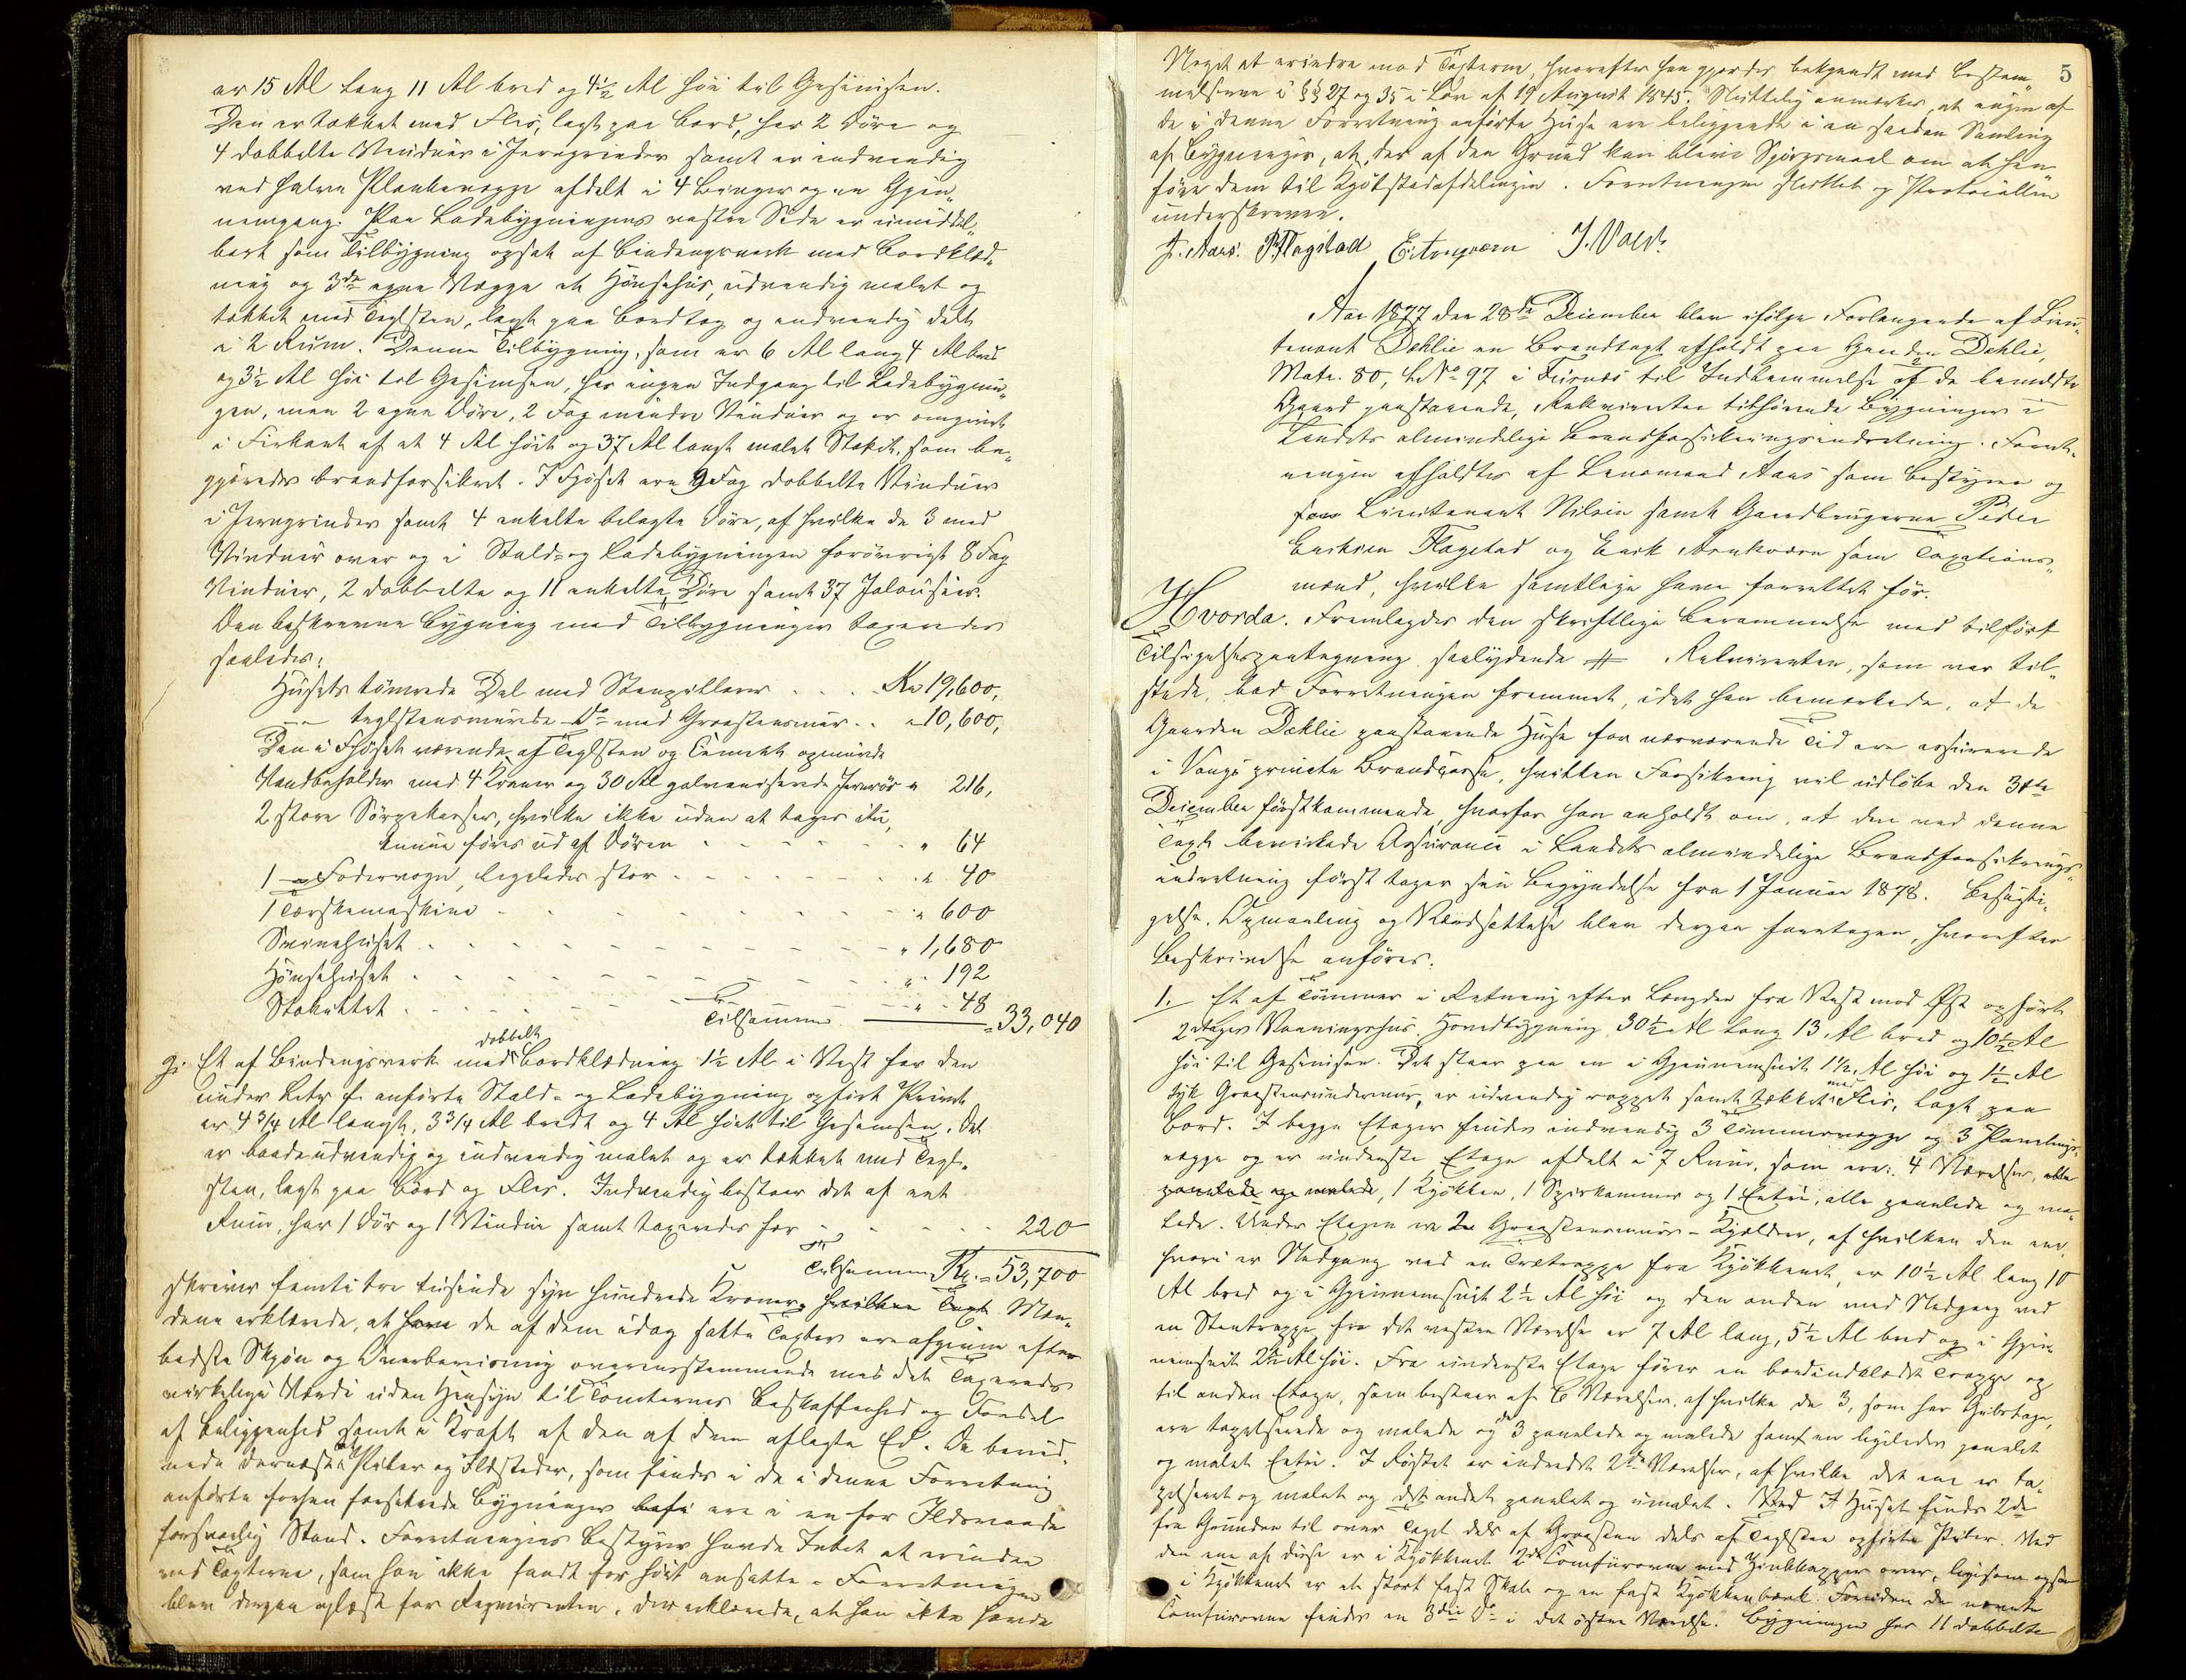 er 15 Al lang 11 Al bred og 4½ Al høi til Gesimsen.
Den er tækket med Flis, lagt paa Bord, har 2 Døre og
4 dobbelte Vinduer i Jerngrinder samt er indvendig
ved halve Plankevægge afdelt i 4 Binger og en Gjen„
nemgang. Paa Ladebygningens vestre Side er umiddel„
bart som Tilbygning opsat af Bindingsverk med Bordklæd„
ning og 3de egne Vægge et Hønsehus, udvendig malet og
tækket med Teglsten, lagt paa Bordtag og indvendig delt
i 2 Rum. Denne Tilbygning, som er 6 Al lang 4 Al bred
og 3½ Al høi til Gesimsen, har ingen Indgang til Ladebygnin„
gen, men 2 egne Døre, 2 Fag mindre Vinduer og er omgivet
i Firkant af et 4 Al høit og 37 Al langt malet Staket, som be„
gjæredes brandforsikret. I Fjøset ere 9 Fag dobbelte Vinduer
i Jerngrinder samt 4 enkelte belagte Døre, af hvilke de 3 med
Vinduer over og i Stald- og Ladebygningen forøvrigt 8 Fag
Vinduer, 2 dobbelte og 11 enkelte Døre samt 37 Jalousier.
Den beskrevne Bygning med Tilbygninger taxeredes
saaledes:
Husets tømrede Del med Stenpillarer . . . . Kr 19,600,
— teglstensmurede Do med Graastensmur . . " 10,600,
Den i Fjøset værende, af Teglsten og Cement opmurede
Vandbeholder med 4 Kraner og 30 Al galvaniserede Jernrør " 216,
2 store Sørpekarser, hvilke ikke uden at tages itu,
kunne føres ud af Døren . . . . . . " 64
1 Fodervogn, ligeledes stor . . . . . . " 40
1 Tærskemaskine . . . . . . " 600
Svinehuset . . . . . . " 1,680
Hønsehuset . . . . . . " 192
Stakittet . . . . . . " 48
Tilsammen 33,040
dobbelt
g. Et af Bindingsverk med Bordklædning 1½ Al i Vest for den
under Litr f. anførte Stald- og Ladebygning opført Privet
er 4¾ Al langt, 3¾ Al bredt og 4 Al høit til Gesimsen. Det
er baade udvendig og indvendig malet og er tækket med Tegl„
sten, lagt paa Bord og Flis. Indvendig bestaar det af eet
Rum, har 1 Dør og 1 Vindue samt taxeredes for . . . . 220
Tilsammen Kr. 53,700
skriver femti tre tusinde syv hundrede Kroner, hvilken Taxt Mæn„
dene erklærede, at have de af dem idag satte Taxter ere afgivne efter
bedste Skjøn og Overbevisning overensstemmende med det Taxeredes
virkelige Værdi uden Hensyn til Tomternes Beskaffenhed og Fordel
af Beliggenhed samt i Kraft af den af dem aflagte Ed. De bevid„
nede dernæst at Piber og Ildsteder, som findes i de i denne Forretning
anførte forhen forsikrede Bygninger befi ere i en for Ildsvaade
forsvarlig Stand. Forretningens Bestyrer havde Intet at erindre
ved Taxterne, som han ikke fandt for høit ansatte. Forretningen
blev derpaa oplæst for Rekvirenten, der erklærede, at han ikke havde
5
Noget at erindre mod Taxterne, hvorefter han gjordes bekjendt med Bestem„
melserne i §§ 27 og 35 i Lov af 19 August 1845. Sluttelig anmærkes, at ingen af
de i denne Forretning anførte Huse ere beliggende i en saadan Samling
af Bygninger, at der af den Grund kan blive Spørgsmaal om at hen„
føre dem til Kjøbstadafdelingen. Forretningen sluttet og Protocollen
underskreven.
J. Aars. P. Flagstad
Aar 1877 den 28de December blev ifølge Forlangende af Lieu„
tenant Dæhlie en Brandtaxt afholdt paa Gaarden Dæhlie,
Matr. 80, L No 97 i Furnæs til Indlemmelse af de bemeldte
Gaard paastaaende, Rekvirenten tilhørende Bygninger i
Landets almindelige Brandforsikringsindretning. Forret„
ningen afholdtes af Lensmand Aars som Bestyrer og
Lieutenant Nilsen samt Gaardbrugerne Peder
Eriksen Flagstad og Erik Arnkværn som Taxations„
mænd, hvilke samtlige have forrettet før.
Hvorda. Fremlagdes den skriftlige Berammelse med tilført
Tilsigelsespaategning saalydende # Rekvirenten, som var til„
stede, bad Forretningen fremmet, idet han bemærkede, at de
Gaarden Dæhlie paastaaende Huse for nærværende Tid ere assurerede
i Vangs private Brandkasse, hvilken Forsikring vil udløbe den 31te
December førstkommende, hvorfor han anholdt om, at den ved denne
Taxt bevirkede Assurance i Landets almindelige Brandforsikrings„
indretning først tager sin Begyndelse fra 1 Januar 1878. Besigti„
gelse, Opmaaling og Værdsættelse blev derpaa foretagen, hvorefter
Beskrivelse anføres:
1. Et af Tømmer i Retning efter Længden fra Vest mod Øst opført
2 Etages Vaaningshus. Hovedbygning 30½ Al lang 13 Al bred og 10½ Al
høi til Gesimsen. Det staar paa en i Gjennemsnit 1½ Al høi og 1½ Al
tyk Graastensundermur, er udvendig rappet samt tækket med Flis, lagt paa
Bord. I begge Etager findes indvendig 3 Tømmervægge og 3 Panelings„
vægge og er underste Etage afdelt i 7 Rum, som ere: 4 Værelser, alle
panelede og malede, 1 Kjøkken, 1 Spisekammer og 1 Entré, alle panelede og ma„
lede. Under Etagen er 2 Graastensmurs-Kjældere, af hvilken den ene,
hvori er Nedgang ved en Trætrappe fra Kjøkkenet, er 10½ Al lang 10
Al bred og i Gjennemsnit 2½ Al høi og den anden med Nedgang ved
en Stentrappe fra det vestre Værelse er 7 Al lang, 5½ Al bred og i Gjen„
nemsnit 2½ Al høi. Fra underste Etage fører en bordindklædt Trappe op
til anden Etage, som bestaar af 6 Værelser, af hvilke de 3, som har Gibstage,
ere tapetserede og malede og de 3 panelede og malede samt en ligeledes panelet
og malet Entré. I Røstet er indredet 2de Værelser, af hvilke det ene er ta„
petseret og malet og det andet panelet og umalet. I Huset findes 2de
fra Grunden til over Taget dels af Graasten dels af Teglsten opførte Piber. Ved
den ene af disse er i Kjøkkenet 2de Komfurovne med Zinkkapper over, ligesom ogsaa
i Kjøkkenet er et stort fast Skab og en fast Kjøkkenbænk. Foruden de nævnte
Comfurovne findes en 3die Do i det østre Værelse. Bygningen har 11 dobbelte